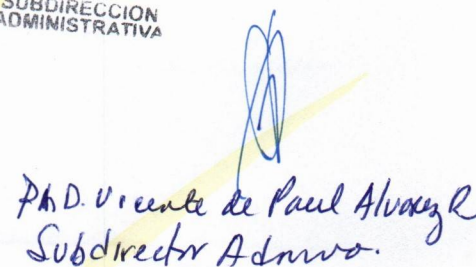 SUBDIRECCION
ADMINISTRATIVA
PhD. Vicente de Paul Alvarez R
Subdirector Admvo.